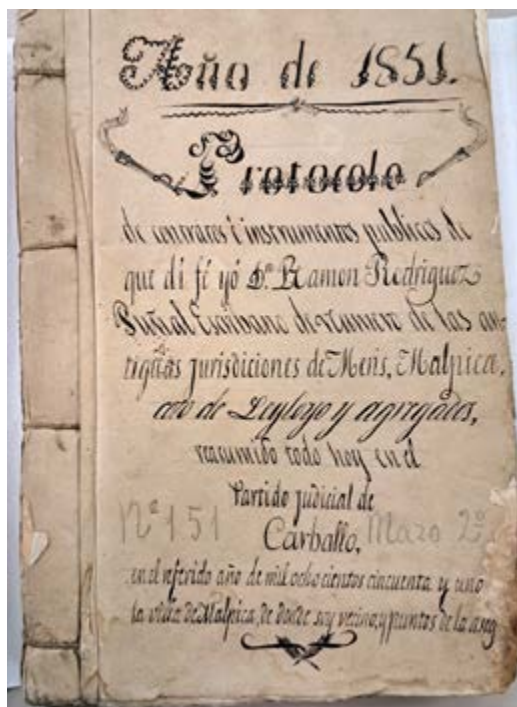 Año de 1851.
Protocolo
de contratos é instrumentos publicos de
que di fé yó Dn. Ramon Rodriguez
Puñal Escribano de numero de las an-
tiguas jurisdiciones de Mens, Malpica,
coto de Leyloyo y agregados,
reasumido todo hoy en el
Partido judicial de
Nº 151 Carballo, Mazo 2º
en el referido año de mil ochocientos cincuenta y uno
la villa de Malpica, de donde soy vecino, y puntos de la